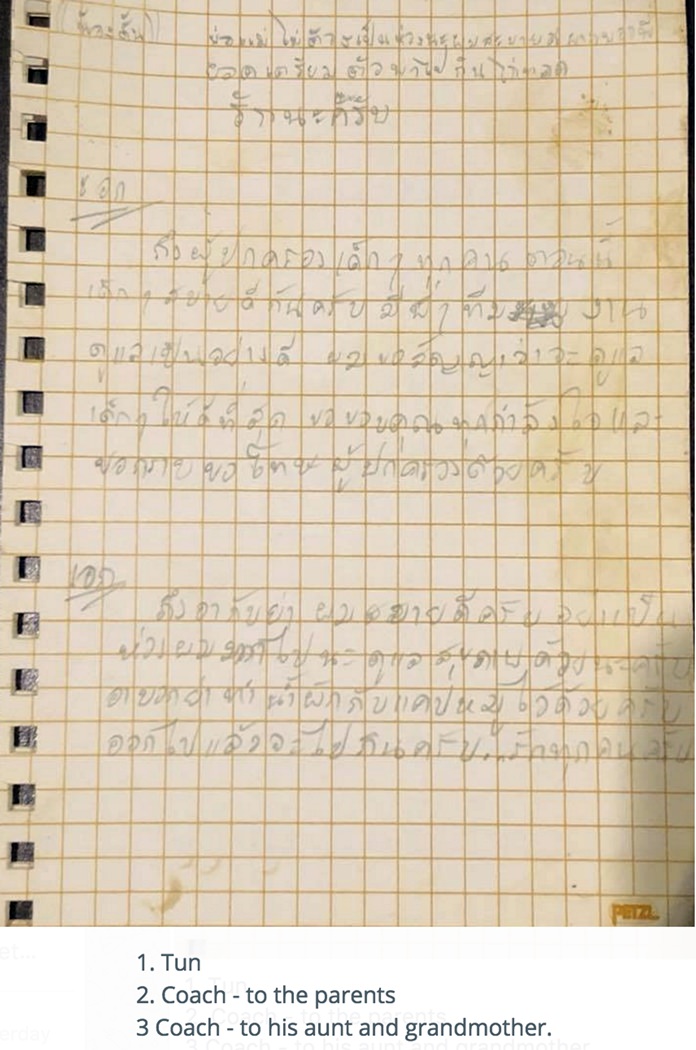 (น้องตั้น) พ่อแม่ไม่ต้องเป็นห่วงนะผมสบายดี
ยอดเตรียมตัวพาไปกินไก่ทอด
ด้วยนะครับ
เอก
ถึงผู้ปกครองเด็กๆทุกคน ตอนนี้
เด็กๆสบายดีกันครับ มีพี่ๆทีม งาน
ดูแลเป็นอย่างดี ผมขอสัญญาว่าจะดูแล
เด็กๆให้ดีที่สุด ขอขอบคุณทุกกำลังใจและ
ขอกราบขอโทษผู้ปกครองด้วยครับ
เอก
ถึงอากับย่า ผมสบายดีครับ อย่าเป็น
ห่วงผม ไปนะ ดูแลสุขภาพด้วยนะครับ
อาบอกย่าทำน้ำผักกับแคปหมูไว้ด้วยครับ
ออกไปแล้วจะไปกินครับ...รักทุกคนครับ
PETZL
1. Tun
2. Coach - to the parents
3 Coach - to his aunt and grandmother.